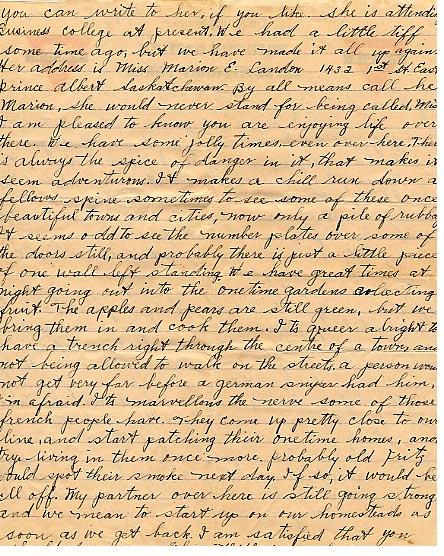 you can write to her, if you like. She is attendin
business college at present. We had a little tiff
some time ago, but we have made it all up again
Her address is Miss Marion E. Landon 1432 1st St. East
Prince Albert Saskatchewan. By all means call he
Marion, she would never stand for being called Miss
I am pleased to know you are enjoying life over
there. We have some jolly times, even over here, The
is always the spice of danger in it, that makes i
seem adventurous. It makes a chill run down a
fellows spine sometimes to see some of these once
beautiful towns and cities, now only a pile of rubbi
It seems odd to see the number plates over some of
the doors still, and probably there is just a little piece
of one wall left standing. We have great times at
night going out into the onetime gardens collecting
fruit. The apples and pears are still green, but we
bring them in and cook them. Its queer alright to
have a trench right through the centre of a town, and
not being allowed to walk on the streets. a person wou
not get very far before a german sniper had him,
I'm afraid. Its marvellous the nerve some of those
french people have. They come up pretty close to our
line, and start patching their onetime homes, and
try living in them once more. probably old Fritz
ould spot their smoke next day. If so, it would be
all off. My partner over here is still going strong
and we mean to start up on our homesteads as
soon, as we get back. I am satisfied that you